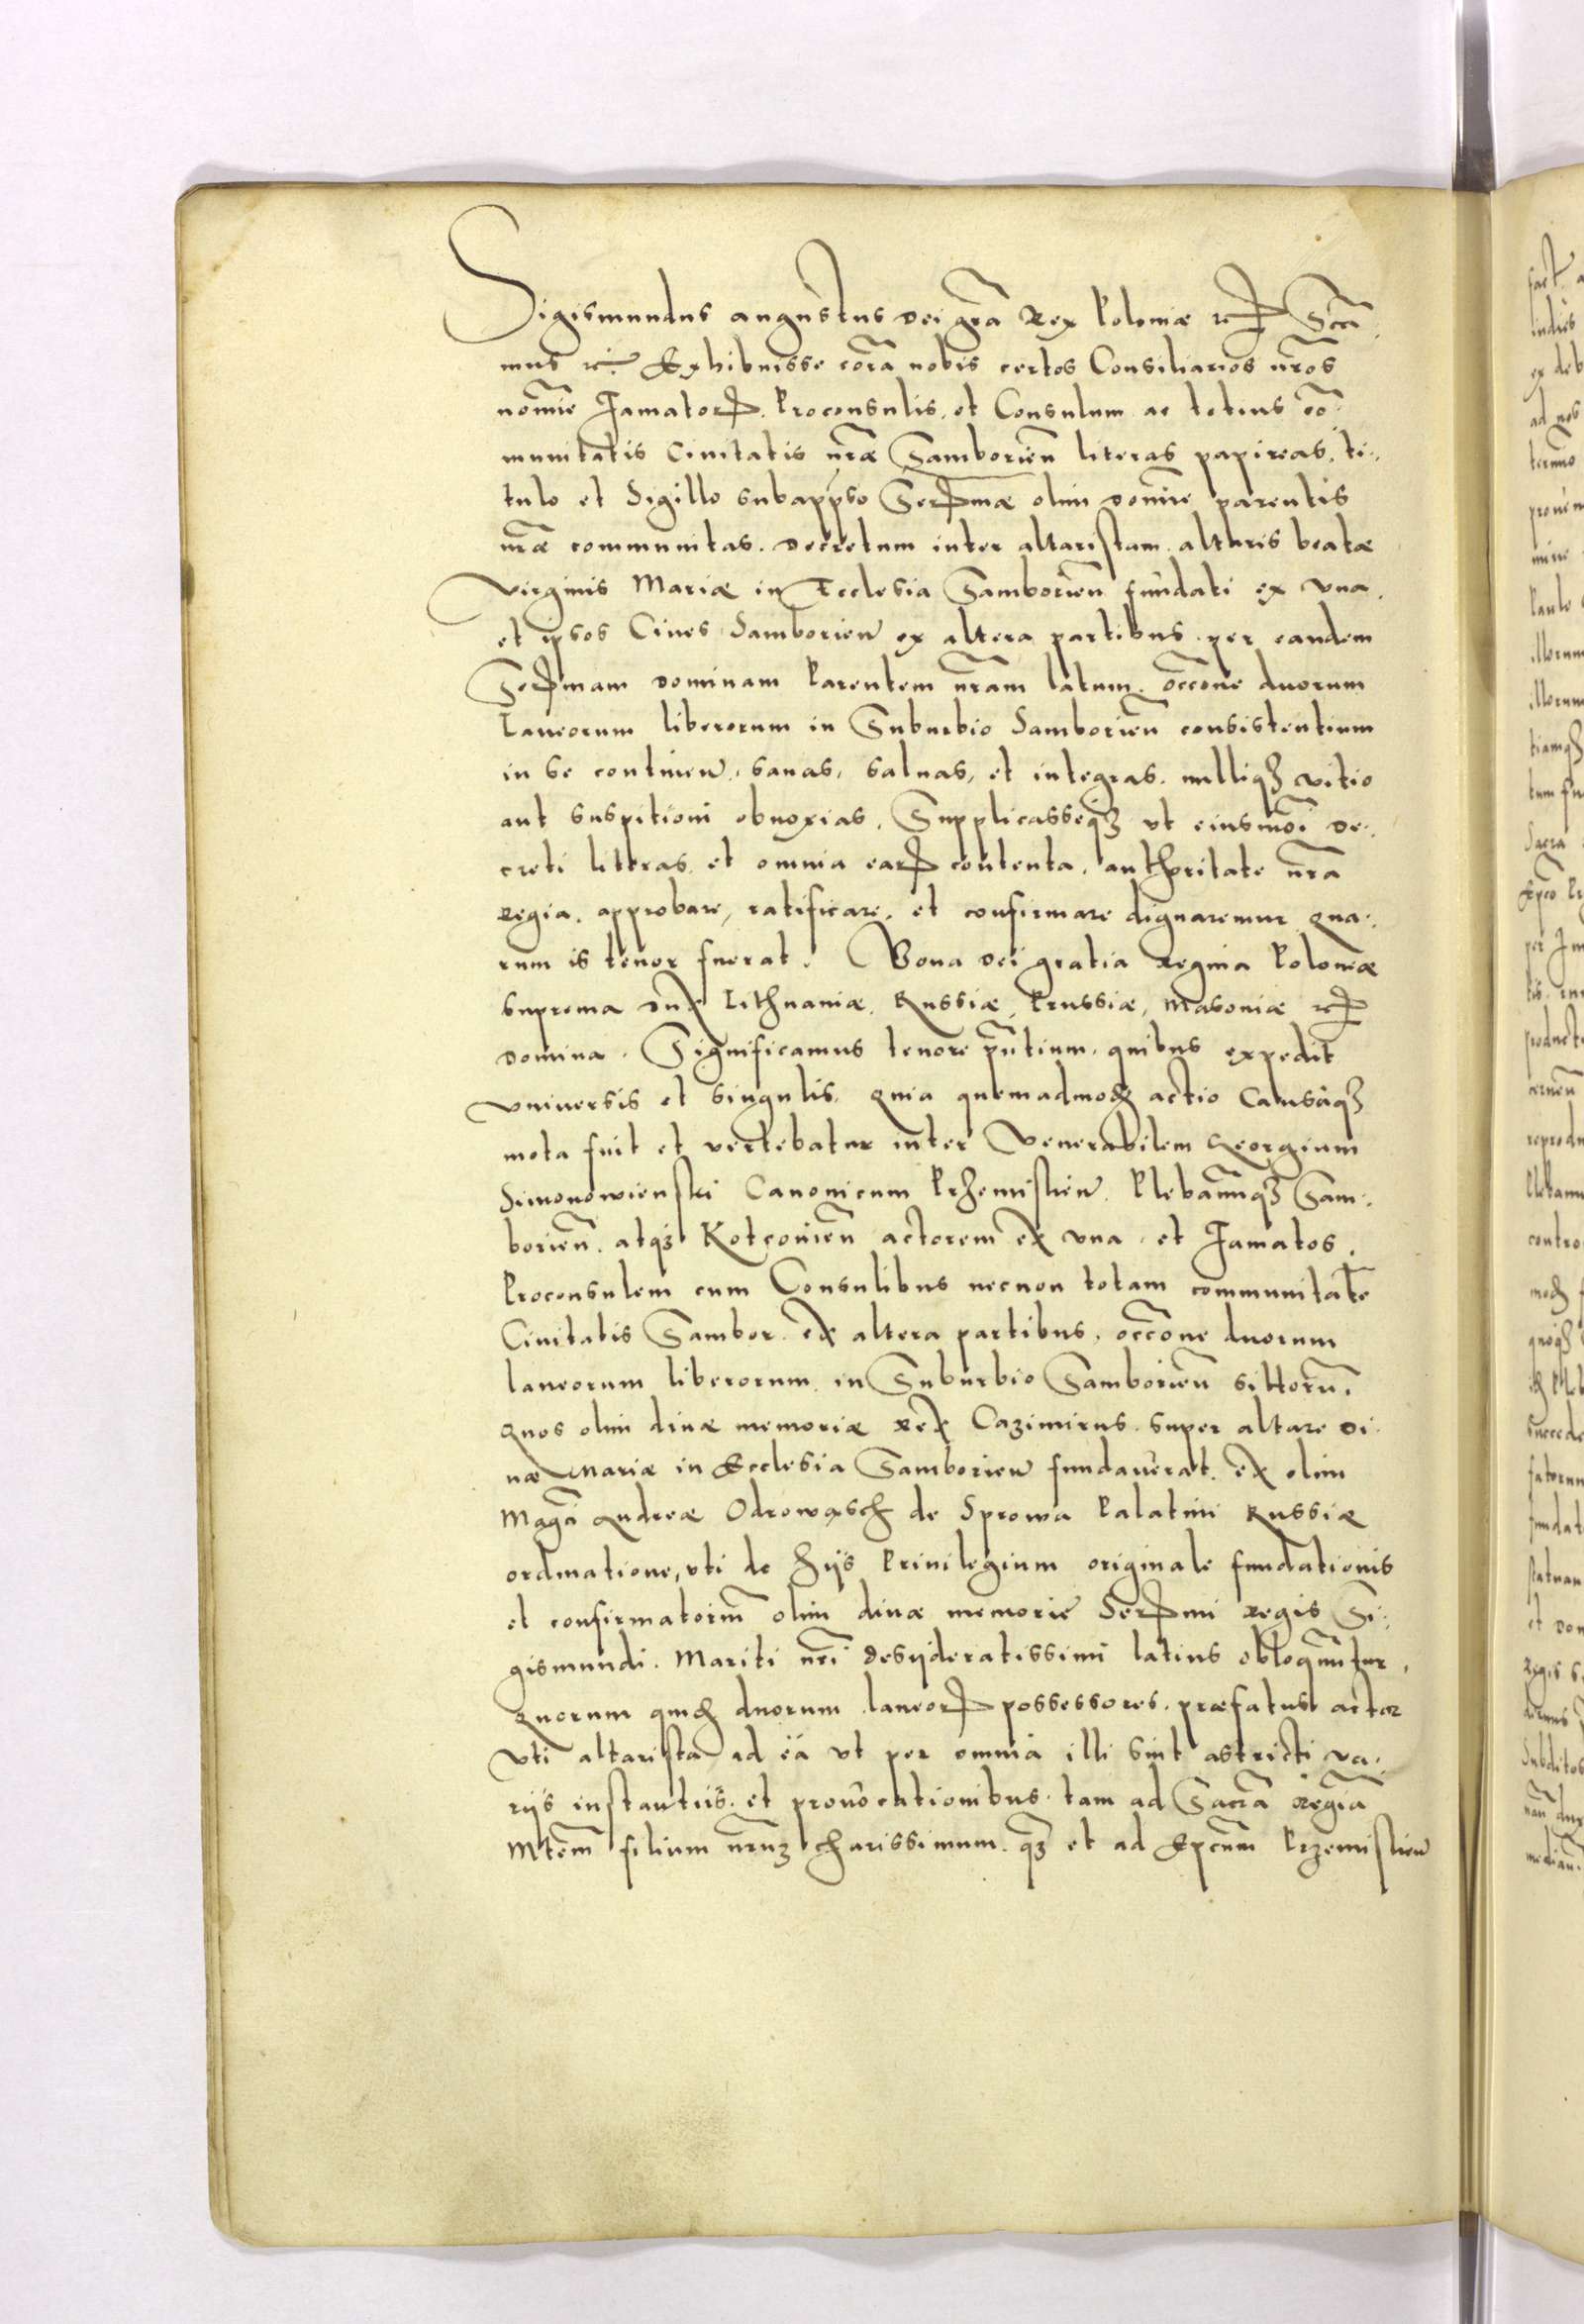 Sigismundus augustus Dei gr̃a Rex Poloniæ &c̃ Scr̃i
mus &c̃. Exhibuisse corã nobis certos Consiliarios nr̃os
nomĩe Famatorꝝ. Proconsulis. et Consulum ac totius cõ
munitatis Ciuitatis nr̃æ Samborien̄ literas papireas, ti,,
tulo et Sigillo subapp̃so Serꝝmæ olim domĩe parentis
nr̃æ communitas. decretum inter altaristam altaris beatæ
Virginis Mariæ in Ecclesia Samborien̄ fundati ex vna.
et ipsos Ciues Samborien̄ ex altera partibus. per eandem
Serꝝmam dominam Parentem nr̃am latum. occõne duorum
Laneorum liberorum in Suburbio Samborien̄ consistentium
in se continen̄, sanas, saluas, et integras. nulliqꝫ vitio
aut suspitioni obnoxias. Supplicasseqꝫ vt eiusmõi de,,
creti litteras et omnia earꝝ contenta. authoritate nr̃a
Regia. approbare, ratificare. et confirmare dignaremur qua,,
rum is tenor fuerat. Bona Dei gratia Regina Poloniæ
suprema dux Lithuaniæ. Russiæ, Prussiæ, Masoniæ &c̃
domina. Significamus tenore pñtium. quibus expedit
vniuersis et singulis. quia quemadmodꝫ actio Causaqꝫ
mota fuit et vertebatur inter Venerabilem Georgium
Simonowienski Canonicum Przemislien̄. Plebanũqꝫ Sam,,
borien̄. atqꝫ Kotconien̄ actorem ex vna. et Famatos.
Proconsulem cum Consulibus necnon totam communitatẽ
Ciuitatis Sambor. ex altera partibus. occõne duorum
laneorum liberorum in Suburbio Samborien̄ sittorũ.
Quos olim diuæ memoriæ rex Cazimirus. super altare Di,,
uæ Mariæ in Ecclesia Samborien̄ fundauerat. ex olim
Magci Andreæ Odrowasch de Sprowa Palatini Russiæ
ordinatione, vti de hijs Priuilegium originale fundationis
et confirmatoriũ olim diuæ memorie Serꝝmi regis Si,,
gismundi. Mariti nr̃i desyderatissimi latius obloquũtur.
Quorum quidꝫ duorum laneorꝝ possessores. præfatus actor
vti altarista ad ea vt per omnia illi sint astricti va,,
rijs instantijs. et prouocationibus. tam ad Sacrã regiã
Mtẽm filium nr̃uꝫ charissimum. qꝫ et ad Epc̃um Przemislien̄